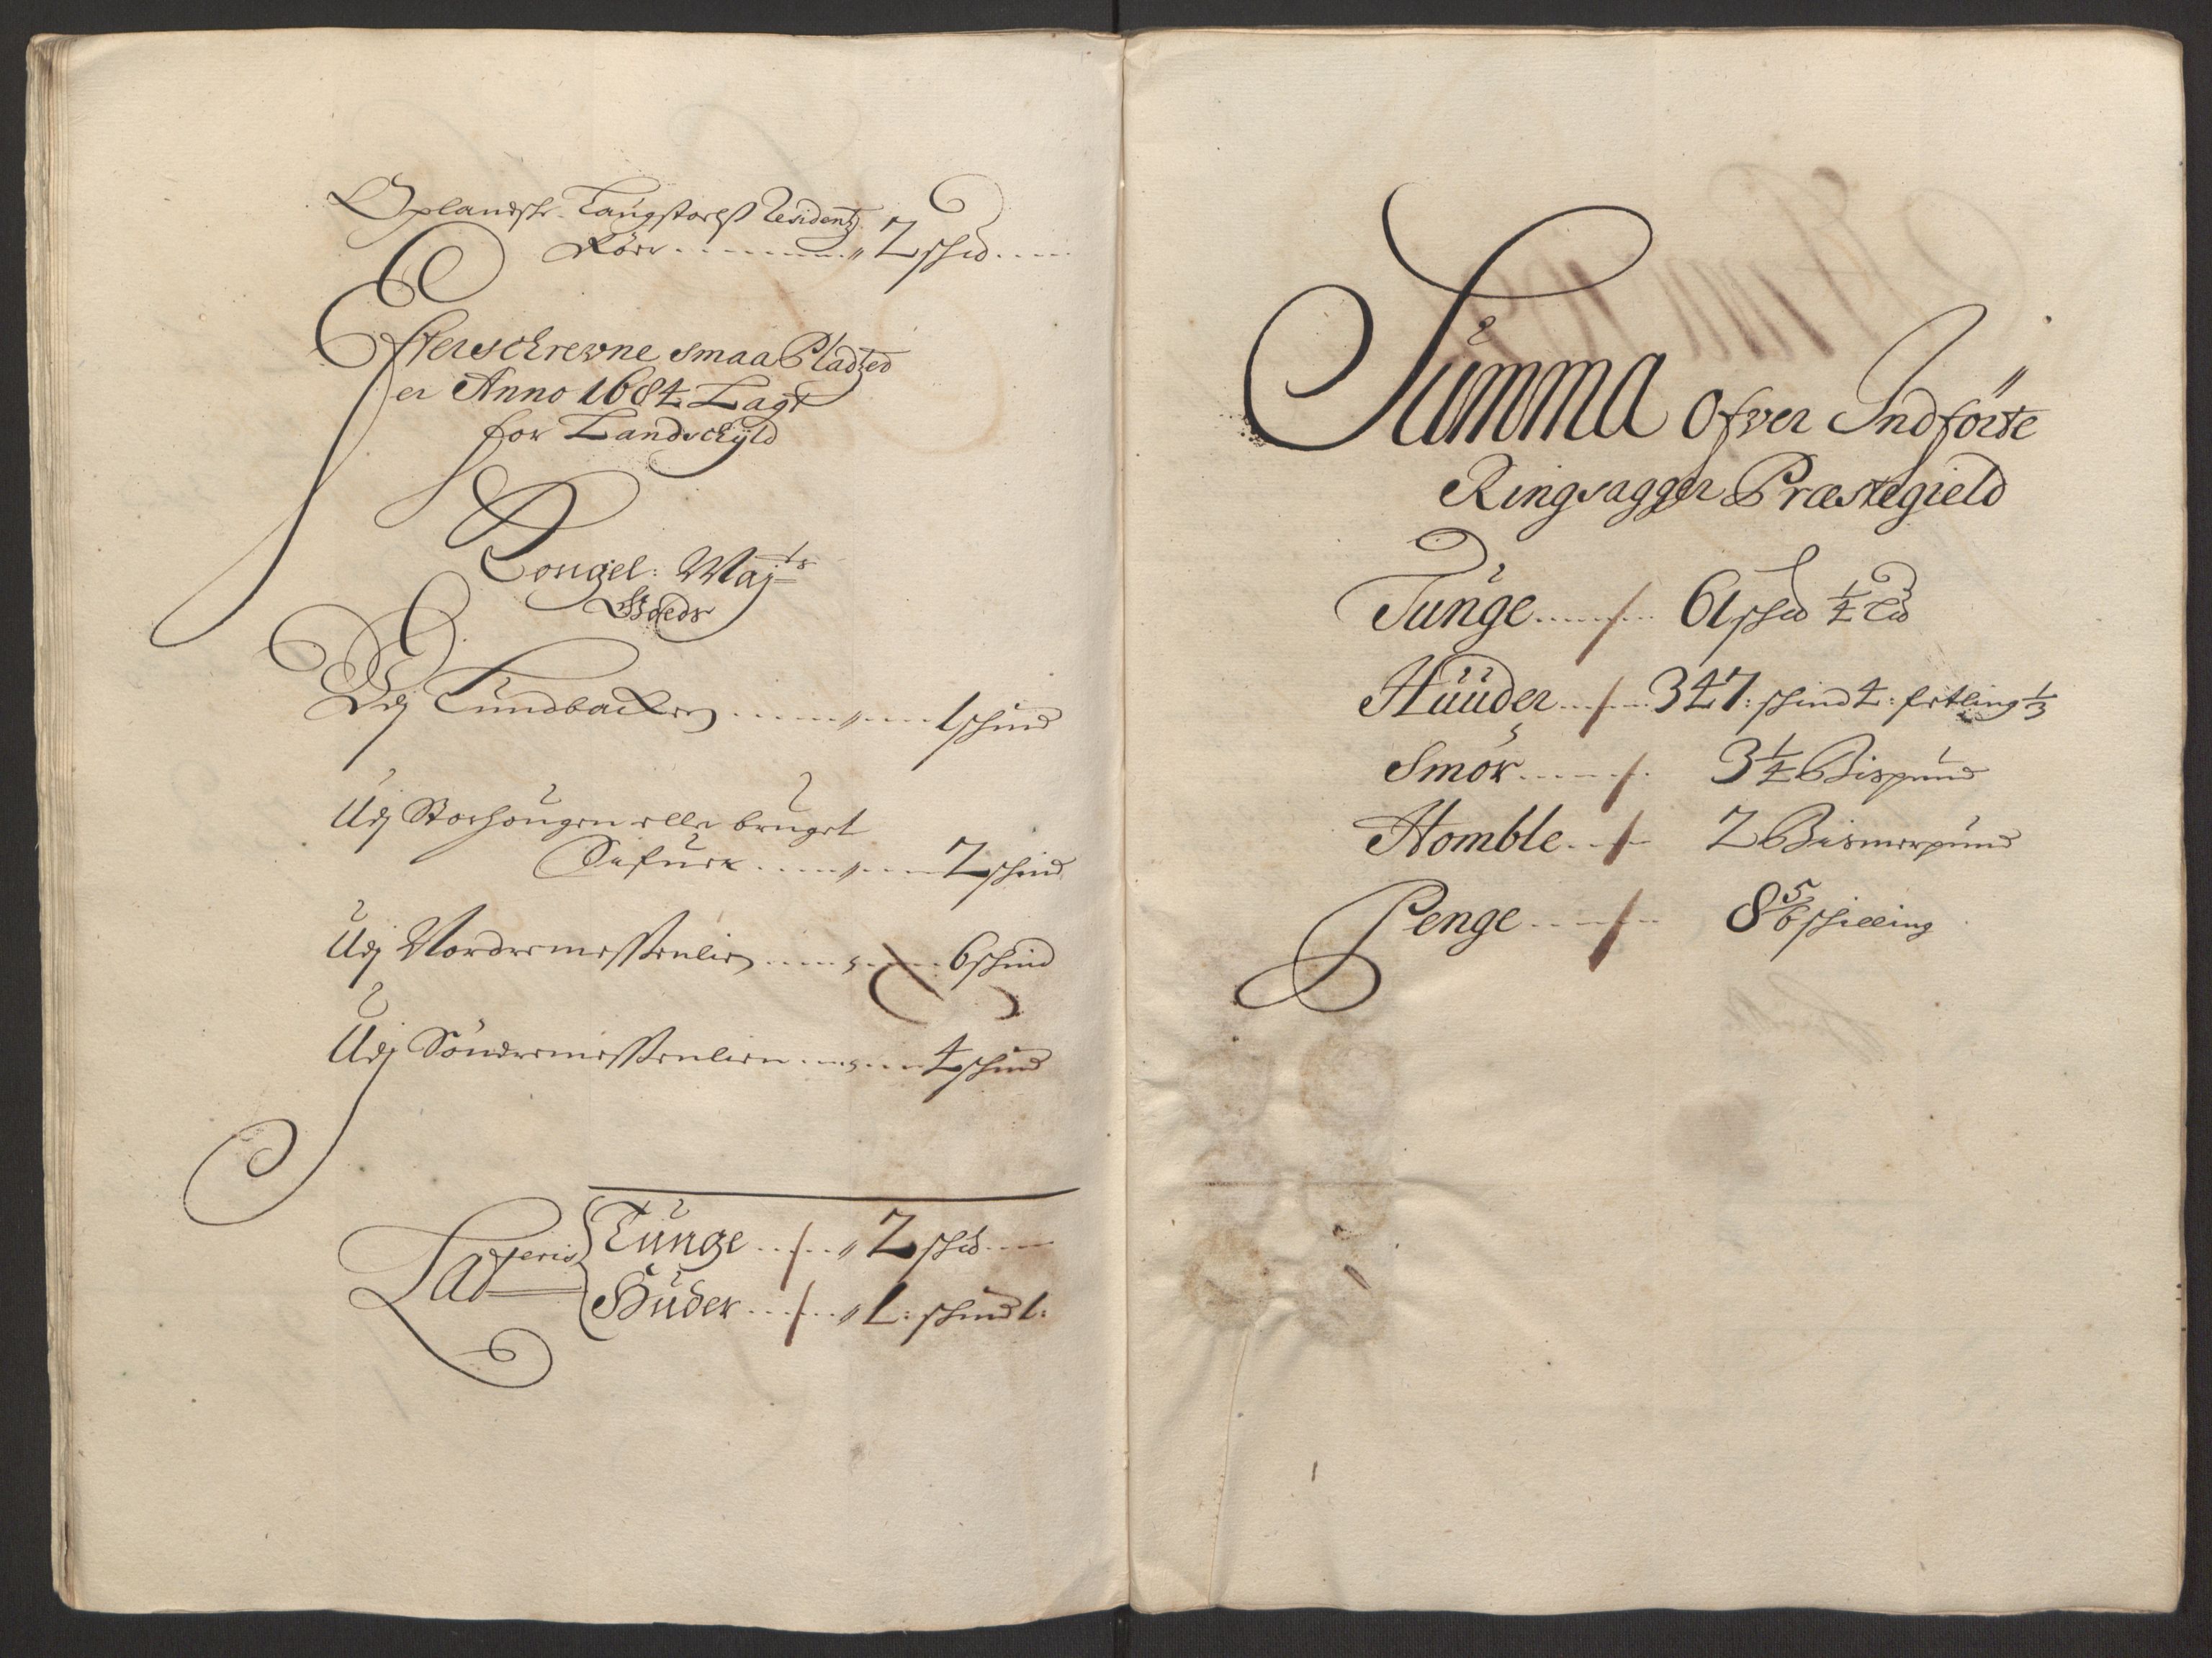 Oplandsche Laugstoelß Residentz
Körr ... 2 schd
Efterschrevne smaa Pladtzer
er Anno 1684 Lagt
for Landschÿld
Kongel: Maÿts
Goeds
Udj Lundbacken ... 1 schind
Udj Storhougen eller bruget
... 2 schind
Udj Nordremessenlien ... 6 schind
Udj Söndremessenlien ... 4 schind
Lateris
Tunge ... 2 schd
Huder ... 1: schind 1:
Summa Ofver Indförte
Ringsagger Præstegield
Tunge ... 61 schd 1/4 td
Huuder ... 347: schind 4: fetling 1/3
Smör ... 3 1/4 Bispund
Homble ... 2 Bismerpund
Penge ... 8 5/6 schilling